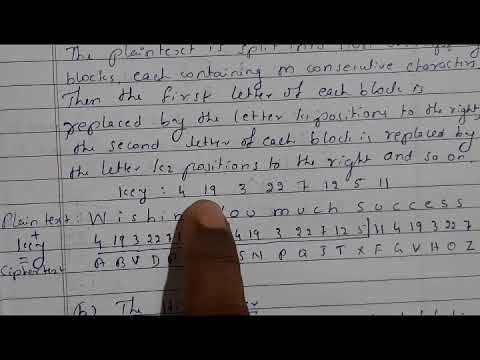 The plaintext is split into non
blocks, each containing m consecutive characters
Then the first letter of each block is
replaced by the letter k1 positions to the right,
the second letter of each block is replaced by
the letter k2 positions to the right and so on
key : 4 19 3 22 7 12 5 11
Plain text: Wishin you much success
+
key 4 19 3 22 7 4 19 3 22 7 12 5 11 4 19 3 22 7
=
Ciphertext A B V D S N P Q J T X F G V H O Z
(b) The